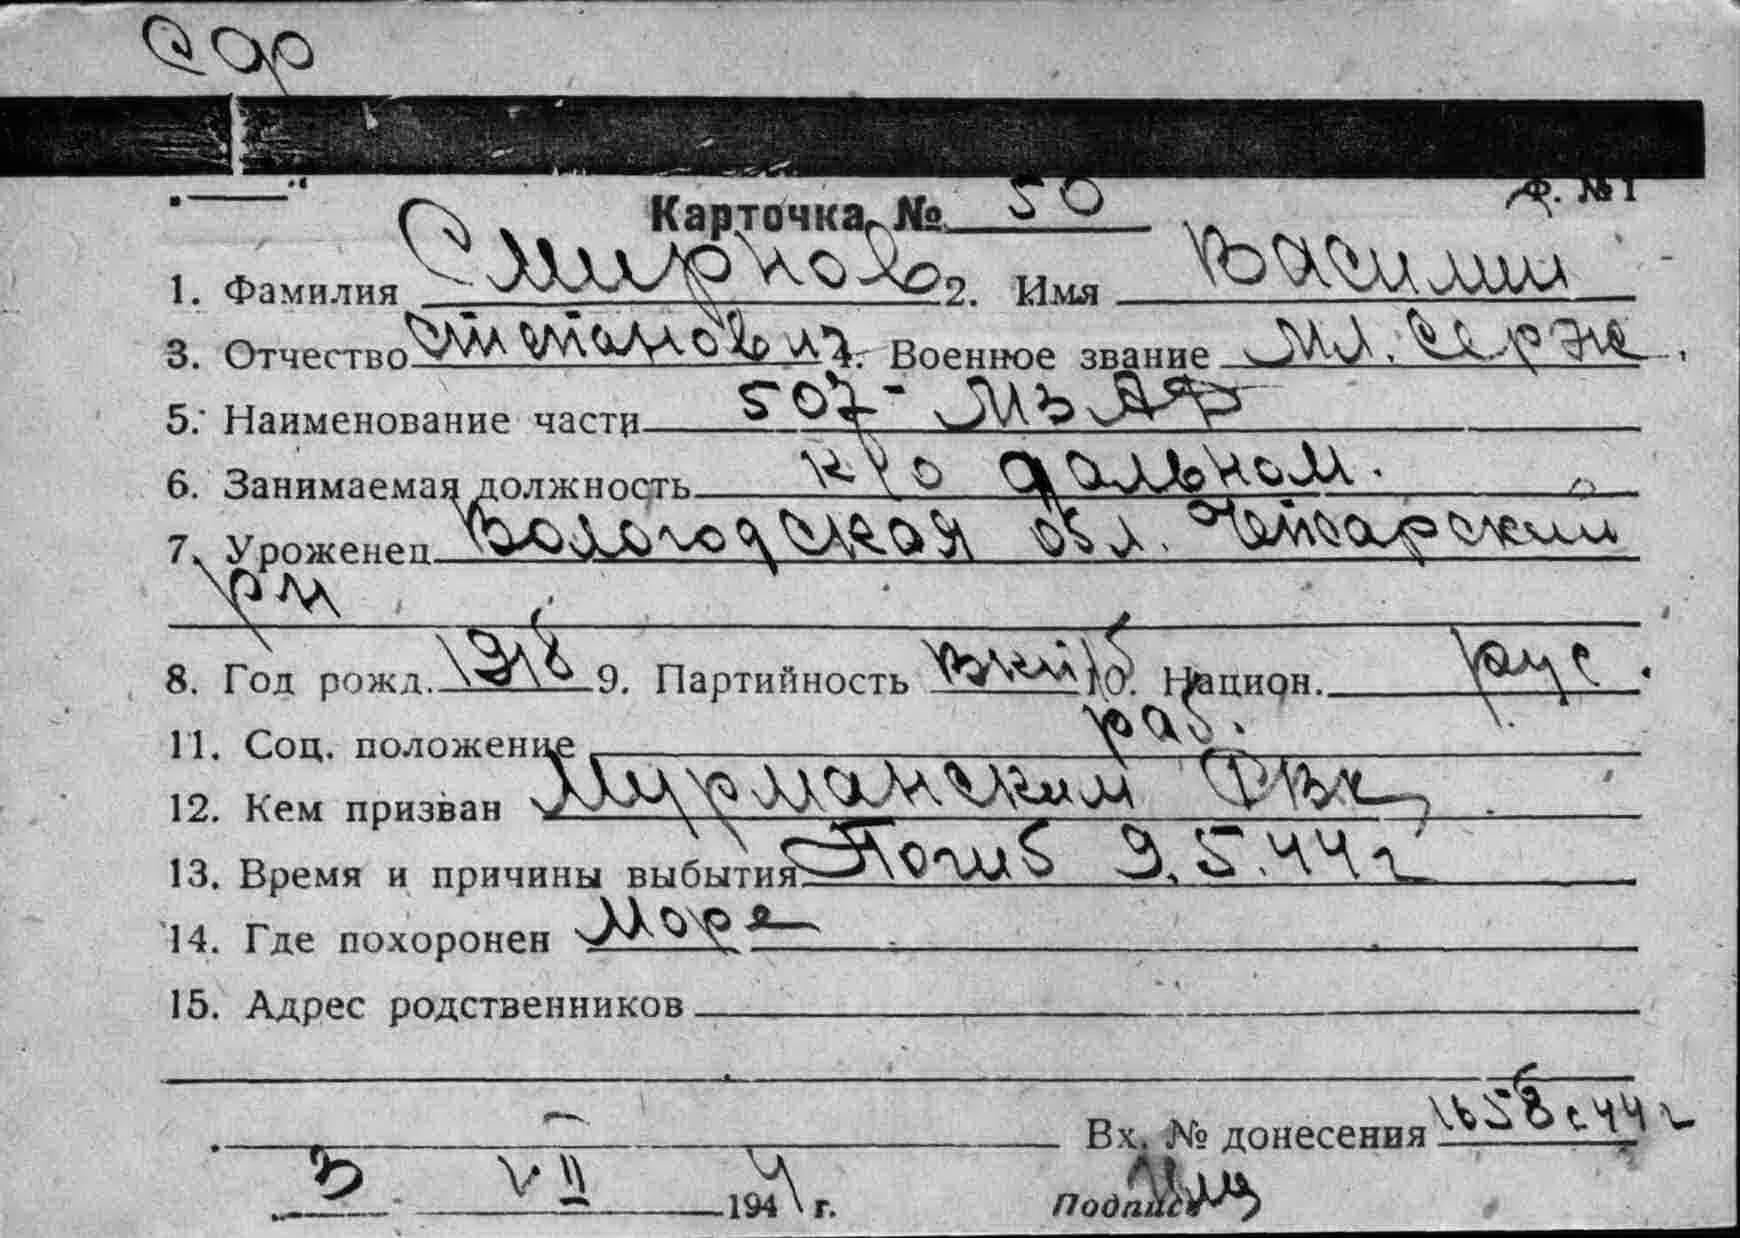 Сдр
Ф. №1
Карточка № 50
1. Фамилия Смирнов 2. Имя Василий
3. Отчество Степанович 4. Военное звание мл. серж.
5. Наименование части 507-МЗАД
6. Занимаемая должность к/о дальном.
7. Уроженец Вологодская обл. Чебсарский
рн
8. Год рожд. 1918 9. Партийность вкпб 10. Национ. рус.
11. Соц. положение раб.
12. Кем призван Мурманским РВК
13. Время и причины выбытия Погиб 9.5.44 г
14. Где похоронен Море
15. Адрес родственников
Вх. № донесения 1658с 44 г
3 VII 1944 г. Подпись